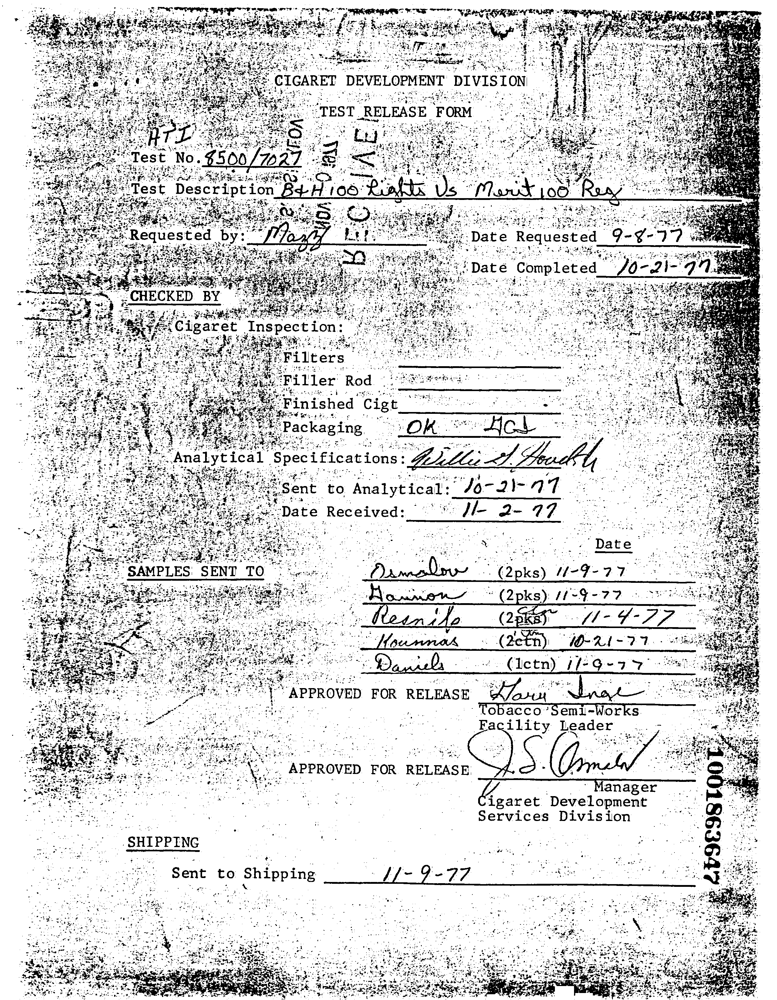 CIGARET DEVELOPMENT DIVISION
TEST RELEASE FORM
HTI
Test No. 8500/7027
Test Description B&H 100 Lights Vs Merit 100 Reg
Requested by: Mazz
Date Requested 9-8-77
Date Completed 10-21-77
CHECKED BY
Cigaret Inspection:
Filters
Filler Rod
Finished Cigt
Packaging OK
Analytical Specifications: Willie G. Houck
Sent to Analytical: 10-21-77
Date Received: 11-2-77
Date
SAMPLES SENT TO Osmalov (2pks) 11-9-77
Gannon (2pks) 11-9-77
Resnik (2pks) ctn 11-4-77
Kounnas (2ctn) 10-21-77
Daniels (1ctn) 11-9-77
APPROVED FOR RELEASE Gary Inge
Tobacco Semi-Works
Facility Leader
APPROVED FOR RELEASE J.S. Osmalov
Manager
Cigaret Development
Services Division
SHIPPING
Sent to Shipping 11-9-77
1001863647